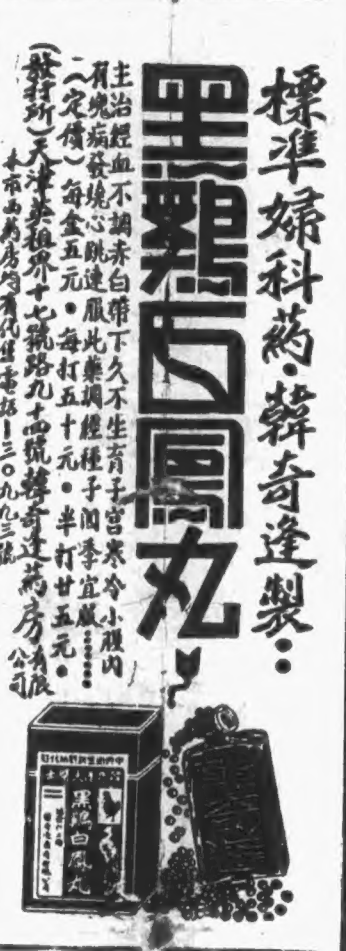 標準婦科葯·韓奇逢製：
黑鷄白鳳丸
主治經血不調赤白帶下久不生育子宮寒冷小腹内
有塊病發燒心跳速服此藥調經種子四季宜服……
（定價）每盒五元·每打五十元·半打廿五元·
（發行所）天津英租界十七號路九十四號韓奇逢葯房有限公司
本市西葯房均有代售電話三〇九九三號
黑鷄白鳳丸